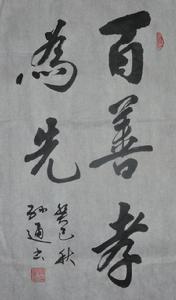 百善孝
為先
癸巳秋
孙通书